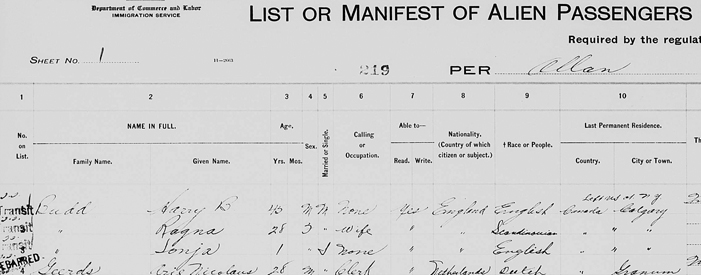 Department of Commerce and Labor
IMMIGRATION SERVICE
LIST OR MANIFEST OF ALIEN PASSENGERS
Required by the regulat
SHEET NO. 1
11-203
219 PER Allan
1 2 3 4 5 6 7 8 9 10
No. on List.
NAME IN FULL.
Family Name. Given Name.
Age.
Yrs. Mos.
Sex.
Married or Single.
Calling or Occupation.
Able to—
Read. Write.
Nationality. (Country of which citizen or subject.)
†Race or People.
Last Permanent Residence.
Country. City or Town.
Th
Transit Budd Harry B 43 M M None Yes England English Canada Calgary
ransit " Ragna 28 F " Wife " " Scandinavian " "
ransit " Sonja 1 " S None " English " "
Nicolaus 28 M " Clerk " Netherlands Dutch " Granum